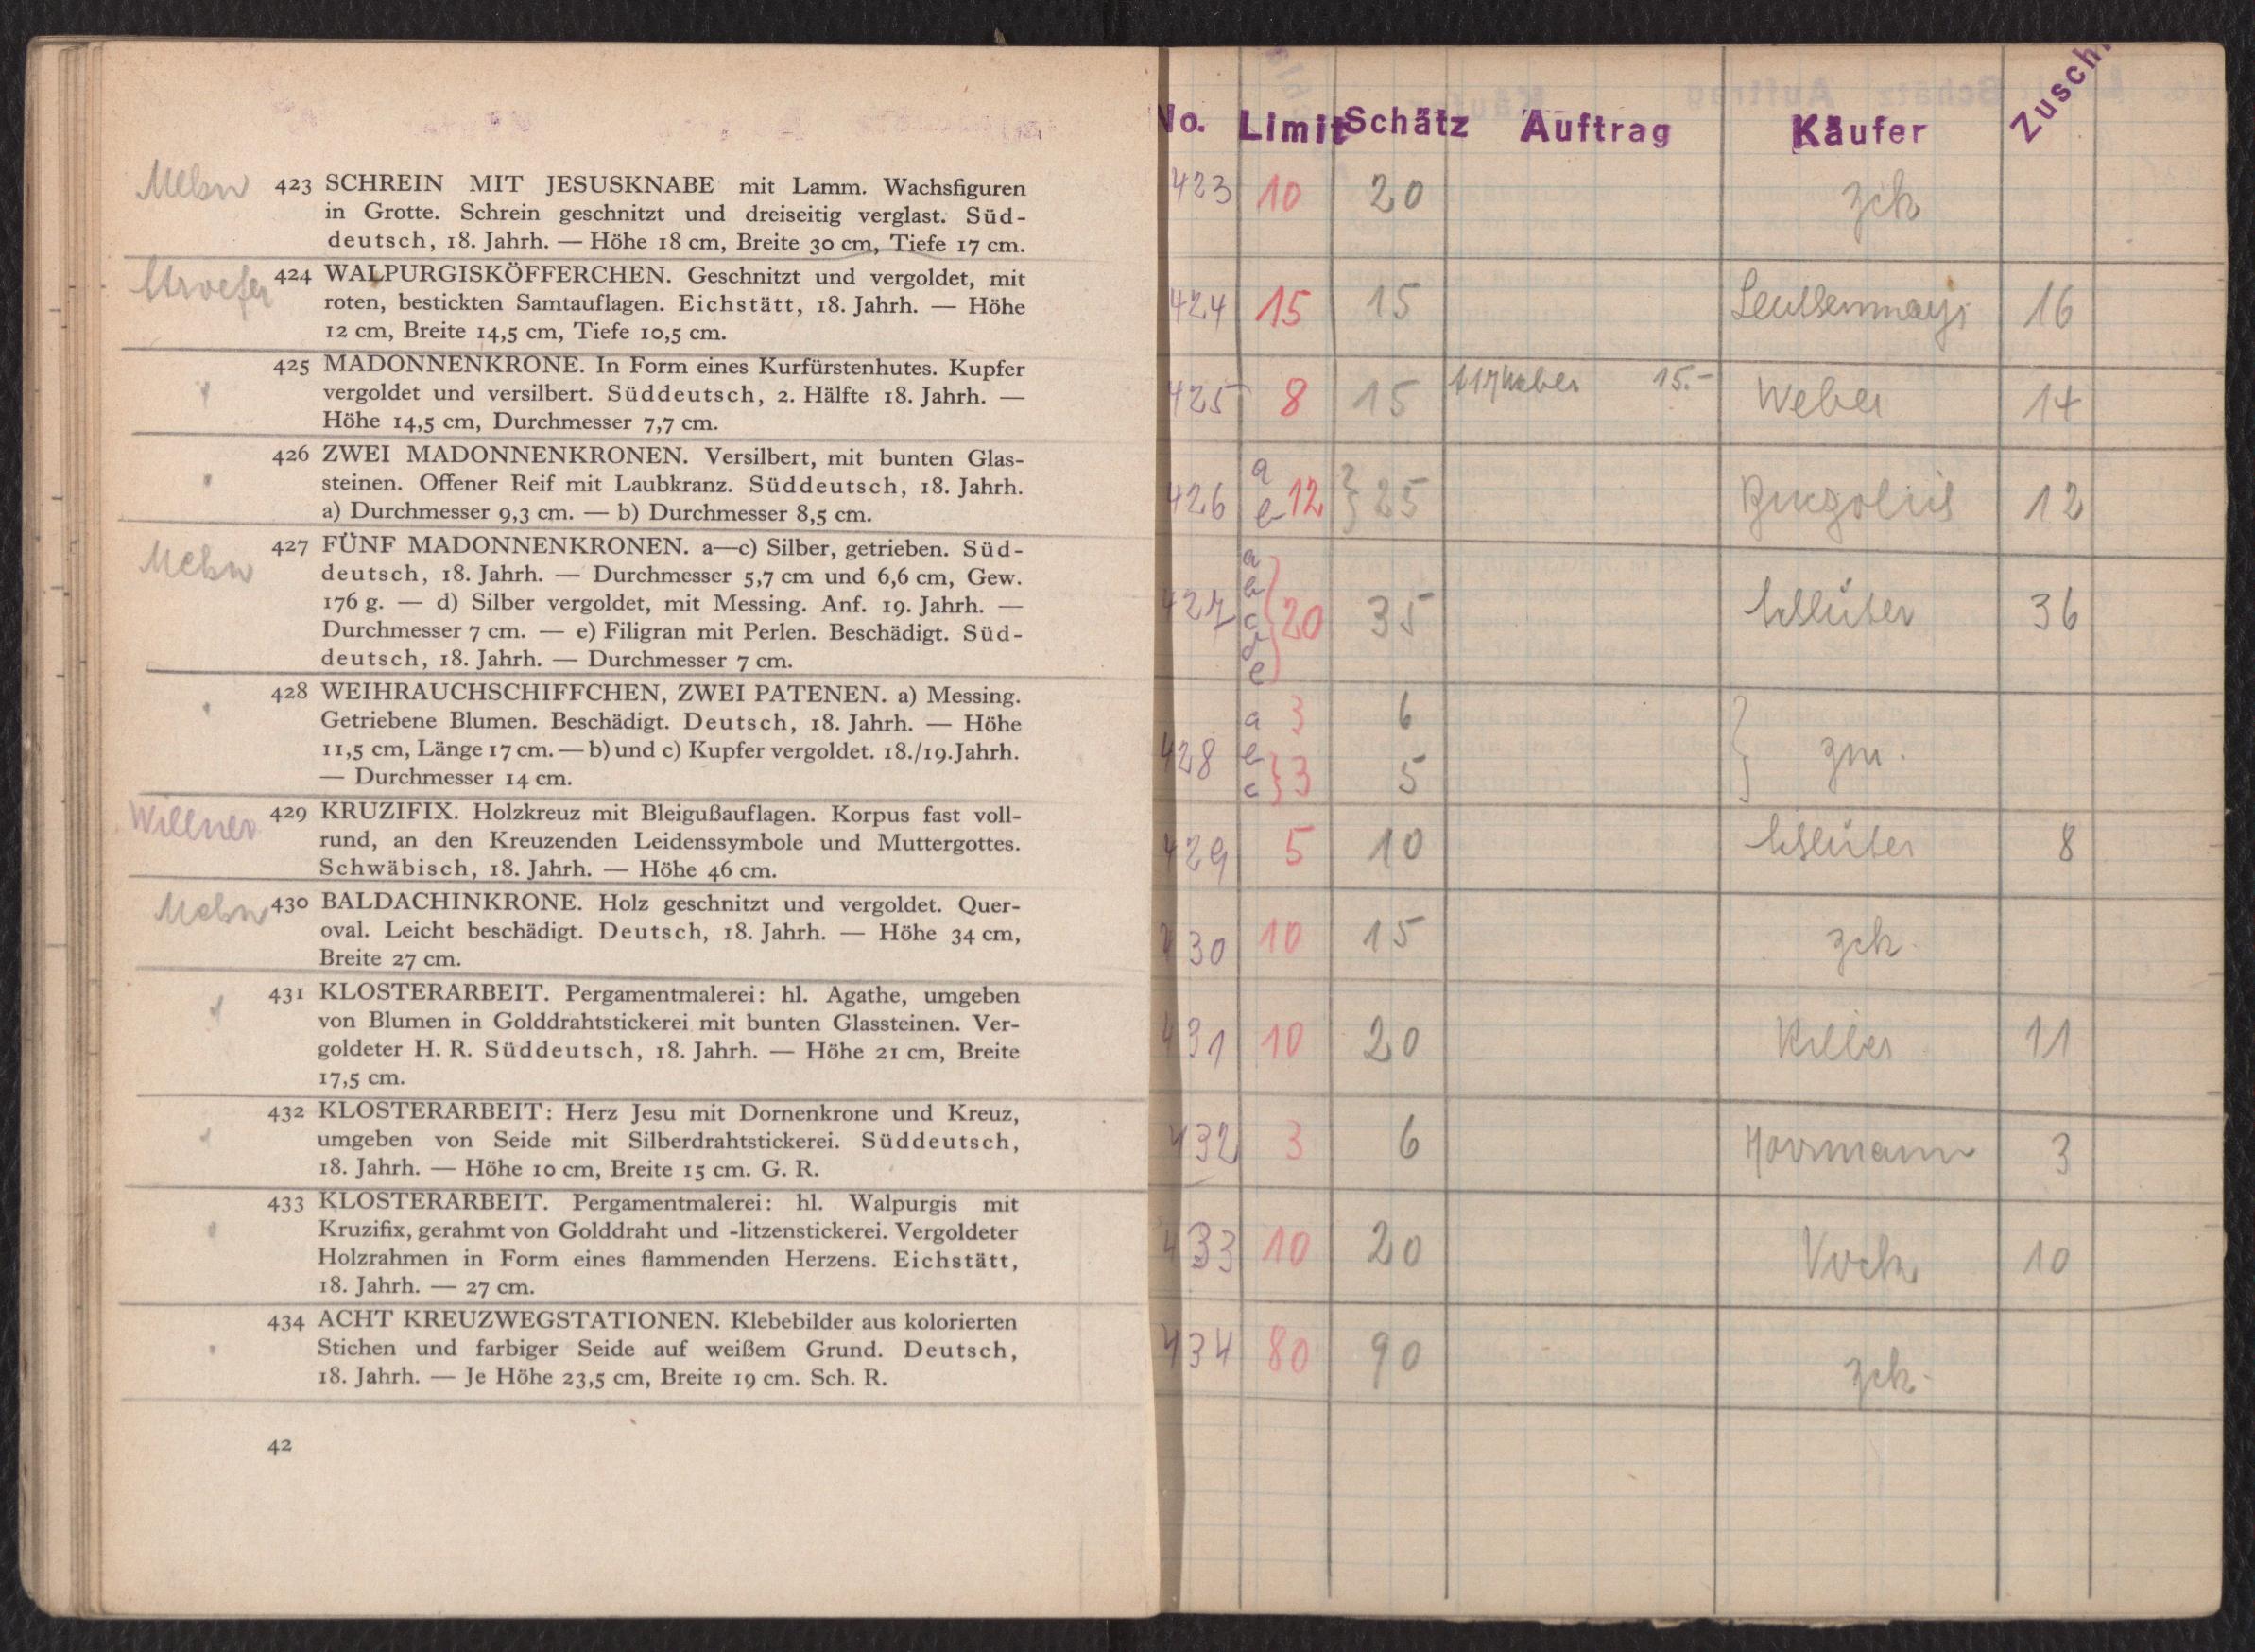 423 SCHREIN MIT JESUSKNABE mit Lamm. Wachsfiguren
in Grotte. Schrein geschnitzt und dreiseitig verglast. Süd-
deutsch, 18. Jahrh. — Höhe 18 cm, Breite 30 cm, Tiefe 17 cm.
424 WALPURGISKÖFFERCHEN. Geschnitzt und vergoldet, mit
roten, bestickten Samtauflagen. Eichstätt, 18. Jahrh. — Höhe
12 cm, Breite 14,5 cm, Tiefe 10,5 cm.
425 MADONNENKRONE. In Form eines Kurfürstenhutes. Kupfer
vergoldet und versilbert. Süddeutsch, 2. Hälfte 18. Jahrh. —
Höhe 14,5 cm, Durchmesser 7,7 cm.
426 ZWEI MADONNENKRONEN. Versilbert, mit bunten Glas-
steinen. Offener Reif mit Laubkranz. Süddeutsch, 18. Jahrh.
a) Durchmesser 9,3 cm. — b) Durchmesser 8,5 cm.
427 FÜNF MADONNENKRONEN. a—c) Silber, getrieben. Süd-
deutsch, 18. Jahrh. — Durchmesser 5,7 cm und 6,6 cm, Gew.
176 g. — d) Silber vergoldet, mit Messing. Anf. 19. Jahrh. —
Durchmesser 7 cm. — e) Filigran mit Perlen. Beschädigt. Süd-
deutsch, 18. Jahrh. — Durchmesser 7 cm.
428 WEIHRAUCHSCHIFFCHEN, ZWEI PATENEN. a) Messing.
Getriebene Blumen. Beschädigt. Deutsch, 18. Jahrh. — Höhe
11,5 cm, Länge 17 cm. — b) und c) Kupfer vergoldet. 18./19. Jahrh.
— Durchmesser 14 cm.
Willner 429 KRUZIFIX. Holzkreuz mit Bleigußauflagen. Korpus fast voll-
rund, an den Kreuzenden Leidenssymbole und Muttergottes.
Schwäbisch, 18. Jahrh. — Höhe 46 cm.
430 BALDACHINKRONE. Holz geschnitzt und vergoldet. Quer-
oval. Leicht beschädigt. Deutsch, 18. Jahrh. — Höhe 34 cm,
Breite 27 cm.
431 KLOSTERARBEIT. Pergamentmalerei: hl. Agathe, umgeben
von Blumen in Golddrahtstickerei mit bunten Glassteinen. Ver-
goldeter H. R. Süddeutsch, 18. Jahrh. — Höhe 21 cm, Breite
17,5 cm.
432 KLOSTERARBEIT: Herz Jesu mit Dornenkrone und Kreuz,
umgeben von Seide mit Silberdrahtstickerei. Süddeutsch,
18. Jahrh. — Höhe 10 cm, Breite 15 cm. G. R.
433 KLOSTERARBEIT. Pergamentmalerei: hl. Walpurgis mit
Kruzifix, gerahmt von Golddraht und -litzenstickerei. Vergoldeter
Holzrahmen in Form eines flammenden Herzens. Eichstätt,
18. Jahrh. — 27 cm.
434 ACHT KREUZWEGSTATIONEN. Klebebilder aus kolorierten
Stichen und farbiger Seide auf weißem Grund. Deutsch,
18. Jahrh. — Je Höhe 23,5 cm, Breite 19 cm. Sch. R.
42
No. Limit Schätz Auftrag Käufer Zusch.
423 10 20 zck
424 15 15 16
425 8 15 Weber 15.- Weber 14
426 a b 12 } 25 12
427 a b c d e } 20 35 Schlüter 36
428 a 3 6
b c } 3 5 } zck.
429 5 10 Schlüter 8
430 10 15 zck.
431 10 20 11
432 3 6 Horrmann 3
433 10 20 Vock 10
434 80 90 zck.